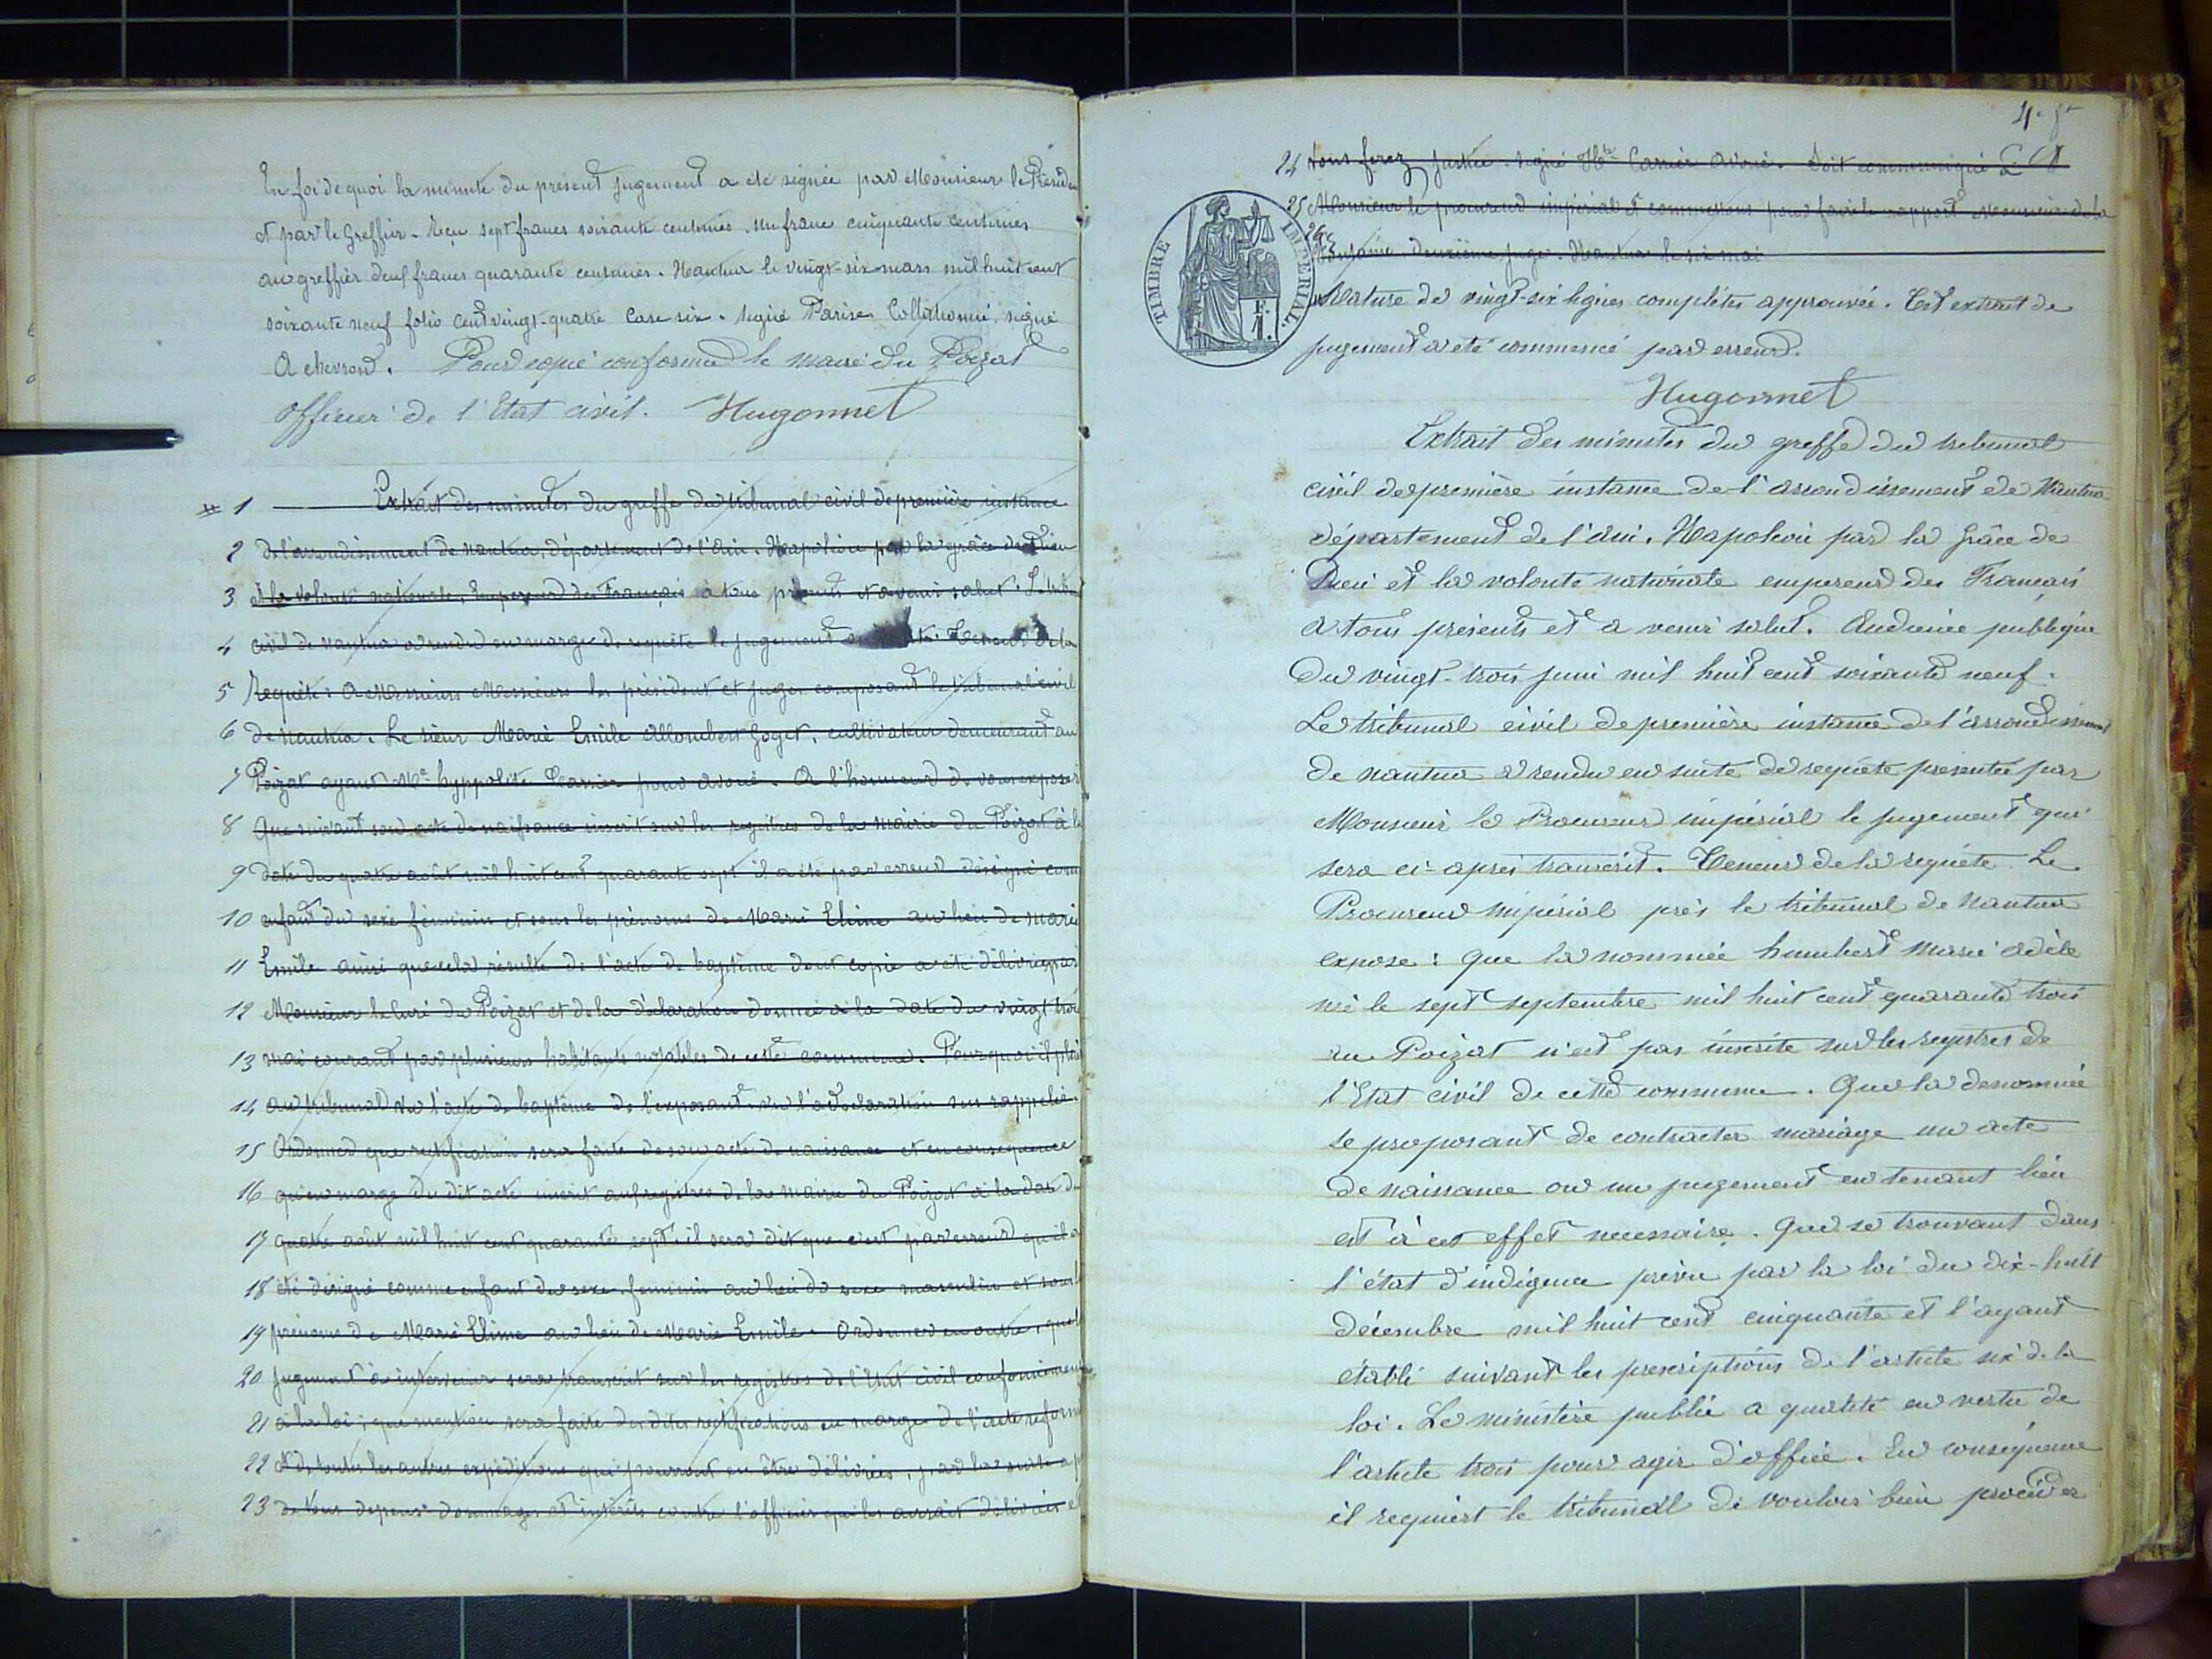 En foi de quoi la minute du present jugement a été signée par Monsieur le Présiden
et par le Greffier. Reçu sept francs soixante centimes un franc cinquante centimes
au greffier deux francs quarante centimes. Nantua le vingt-six mars mil huit cent
soixante neuf folio cent vingt-quatre Case six. Signé Parise. Collationné, signé
A Chevron. Pour copie conforme le maire du Poizat
Officier de l'Etat civil. Hugonnet
# 1 Extrait des minutes du greffe du tribunal civil de première instance
2 de l'arrondissement de nantua, département de l'Ain. Napoléon par la grâce de Dieu
3 et la volonté nationale, Empereur des Français à tous présents et à venir salut. Le tribu
4 civil de nantua a rendu en marge de requête le jugement Teneur de la
5 Requête : A Messieurs Messieurs les président et juges composant le tribunal civil
6 de nantua. Le sieur Marie Emile Allombert Goget, cultivateur demeurant au
7 Poizat ayant Me hyppolite Carrier pour avoué. A l'honneur de vous exposer
8 Que suivant son acte de naissance inscrit sur les registres de la mairie du Poizat à la
9 date du quatre août mil huit cent quarante sept il a été par erreur désigné com
10 enfant du sexe féminin et sous les prénoms de Marie Elime au lieu de marie
11 Emile ainsi que cela résulte de l'acte de baptême dont copie a été délivrée par
12 Monsieur le Curé du Poizat et de la déclaration donnée à la date du vingt trois
13 mai courant par plusieurs habitants notables de cette commune. Pourquoi il plai
14 au tribunal vu l'acte de baptême de l'exposant vu la déclaration sus rappelée.
15 Ordonner que rectification sera faite de son acte de naissance et en consequence
16 qu'en marge du dit acte inscrit aux registres de la mairie du Poizat à la date du
17 quatre août mil huit cent quarante sept il sera dit que c'est par erreur qu'il a
18 été désigné comme enfant du sexe feminin au lieu du sexe masculin et sous les
19 prénoms de Marie Elime au lieu de Marie Emile. Ordonner en outre, que le
20 jugement à intervenir sera transcrit sur les registres de l'Etat civil conformément
21 à la loi ; que mention sera faite des dites rectifications en marge de l'acte reform
22 et de toutes les autres expéditions qui pourront en être délivrées,
23 de tous depens dommages et intérêts contre l'officier qui les aurait délivrées et
24 vous ferez justice. signé Hte Carrier avoué. Soit communiqué à
25 Monsieur le procureur impérial et commettons pour faire le rapport Monsieur de la
26 deuxième juge. Nantua le six mai
TIMBRE IMPERIAL.
Rature de vingt-six lignes complètes approuvée. Cet extrait de
jugement a été commencé par erreur.
Hugonnet
Extrait des minutes du greffe du tribunal
civil de première instance de l'arrondissement de Nantua
département de l'Ain. Napoléon par la Grâce de
Dieu et la volonté nationale empereur des Français
à tous présents et à venir salut. Audience publique
du vingt-trois juin mil huit cent soixante neuf.
Le tribunal civil de première instance de l'arrondissement
de nantua a rendu en suite de requête présentée par
Monsieur le Procureur impérial le jugement qui
sera ci-après transcrit. Teneur de la requête. Le
Procureur impérial près le tribunal de nantua
expose : Que la nommée humbert marie adèle
né le sept septembre mil huit cent quarante trois
au Poizat n'est pas inscrite sur les registres de
l'Etat civil de cette commune. Que la denommée
se proposant de contracter mariage un acte
de naissance ou un jugement en tenant lieu
est à cet effet necessaire. Que se trouvant dans
l'état d'indigence prévu par la loi du dix-huit
décembre mil huit cent cinquante et l'ayant
établi suivant les prescriptions de l'article six de la
loi. Le ministère public a qualité en vertu de
l'article trois pour agir d'office. En conséquence
il requiert le tribunal de vouloir bien procéder